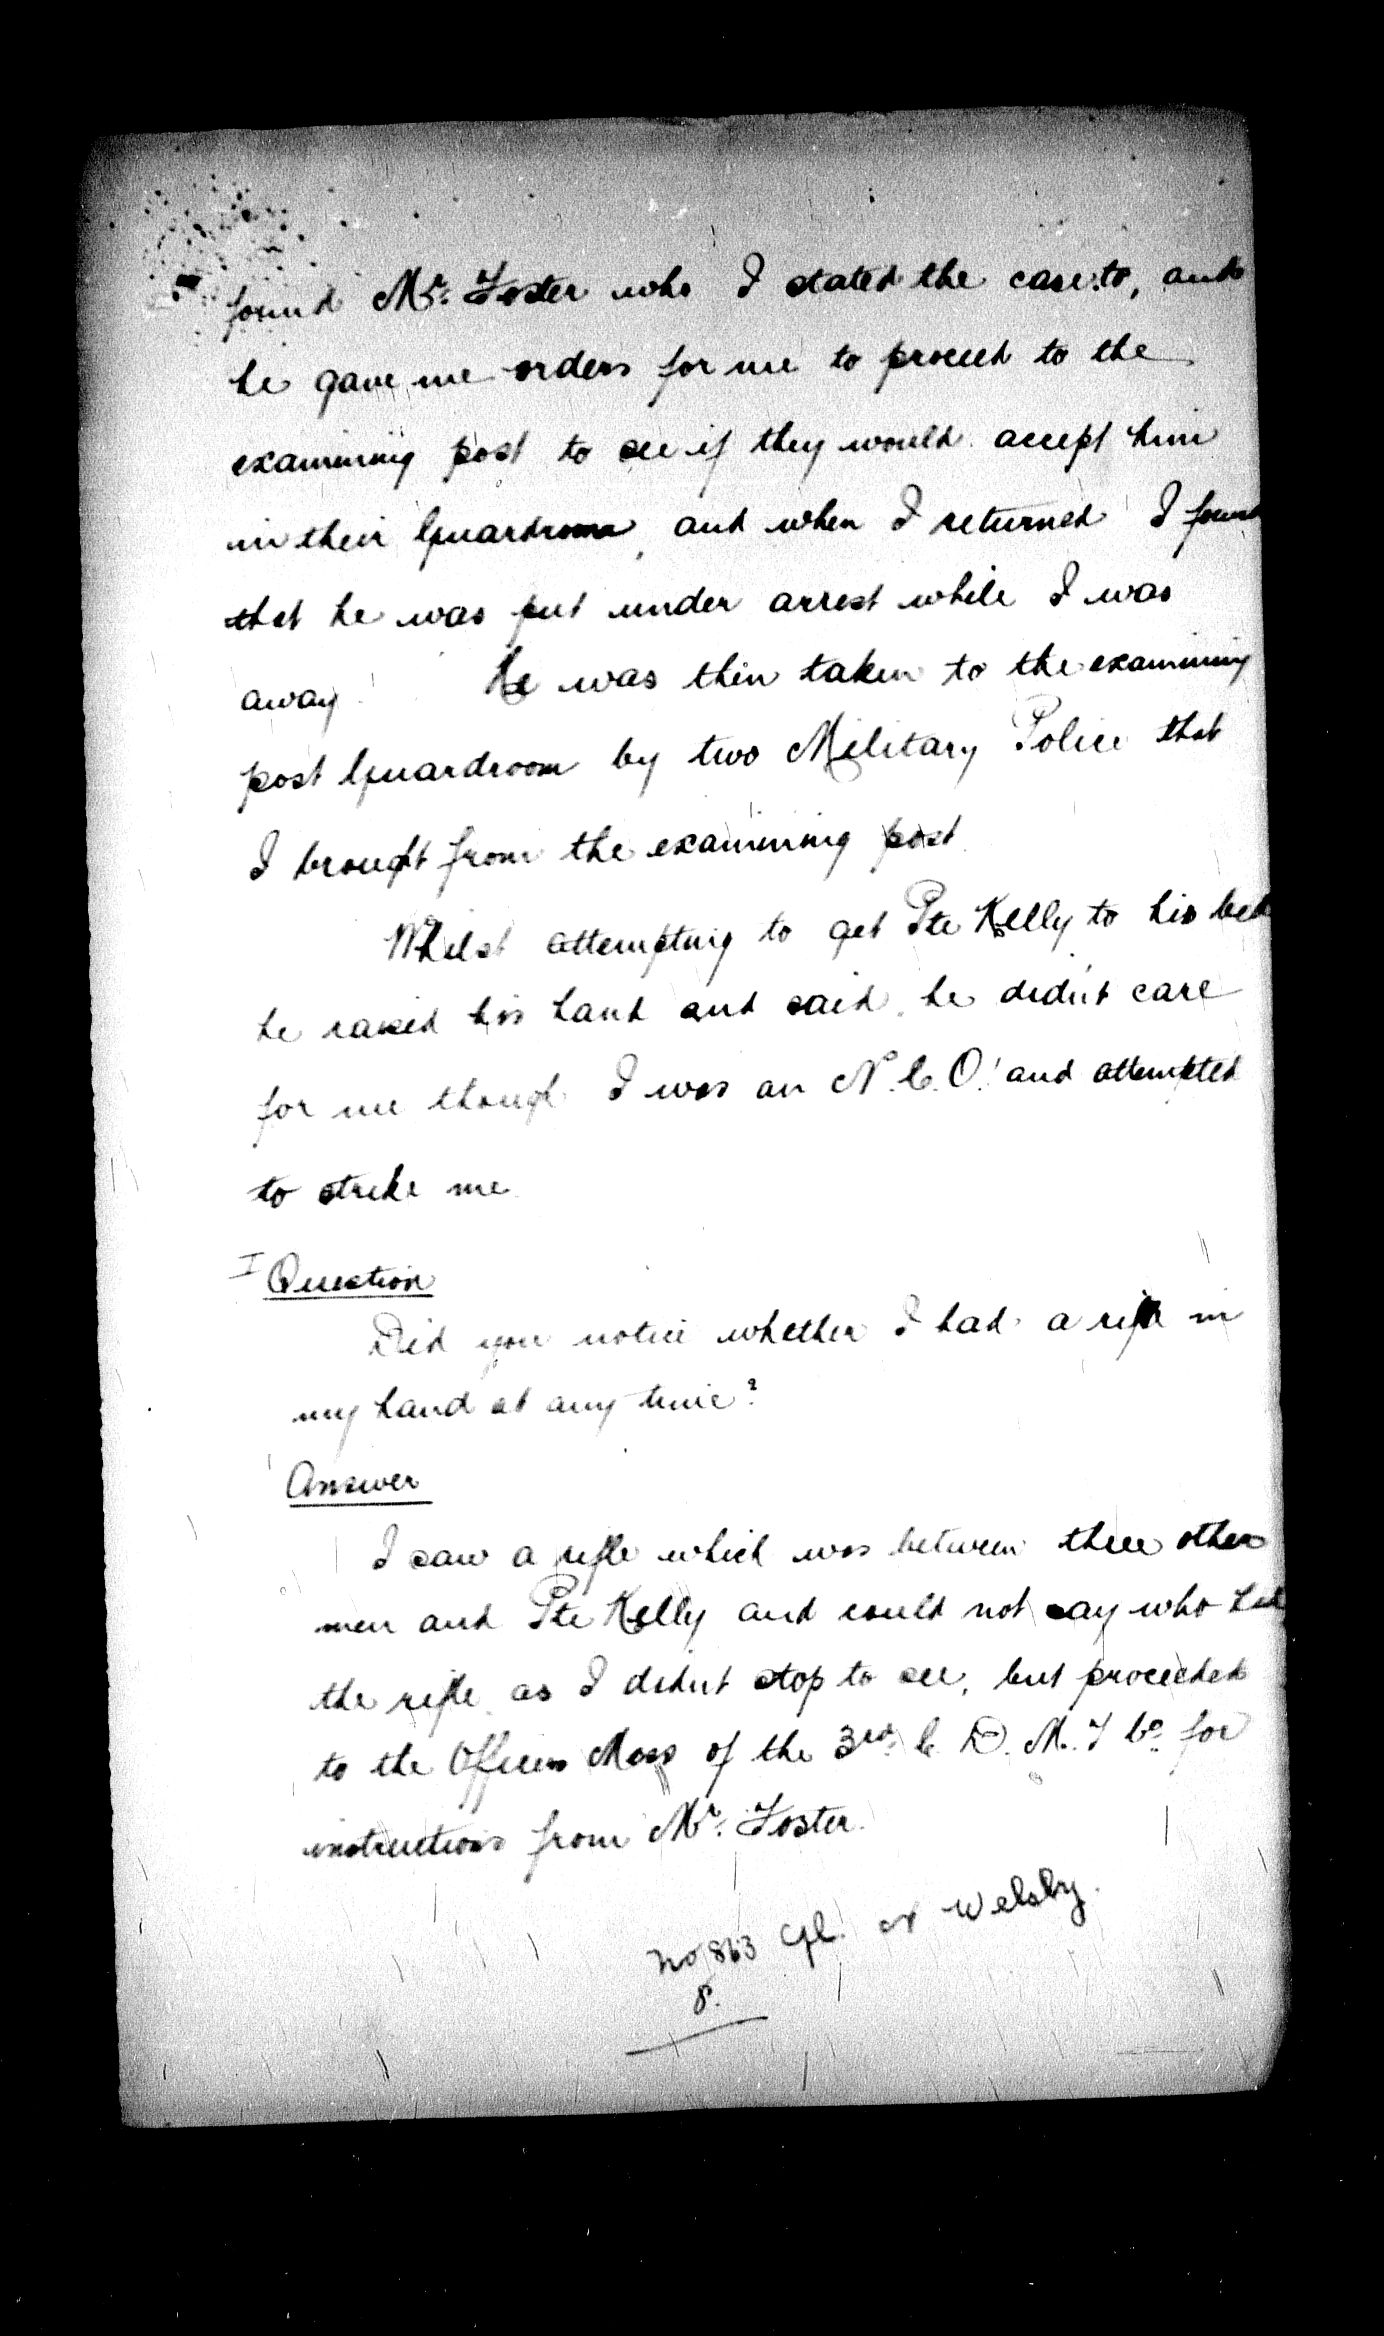 found Mr. Foster who I stated the case to, and
he gave me orders for me to proceed to the
examining post to see if they would accept him
in their Guardroom, and when I returned I found
that he was put under arrest while I was
away. He was then taken to the examining
post Guardroom by two Military Police that
I brought from the examining post.
Whilst attempting to get Pte Kelly to his bed
he raised his hand and said he didn't care
for me though I was an N.C.O. and attempted
to strike me
I Question
Did you notice whether I had a rifle in
my hand at any time?
Answer
I saw a rifle which was between three other
men and Pte Kelly and could not say who had
the rifle as I didn't stop to see, but proceeded
to the Officers Mess of the 3rd. C. D. M. T Co. for
instructions from Mr. Foster.
No 863 Cpl. Welsby.
8.